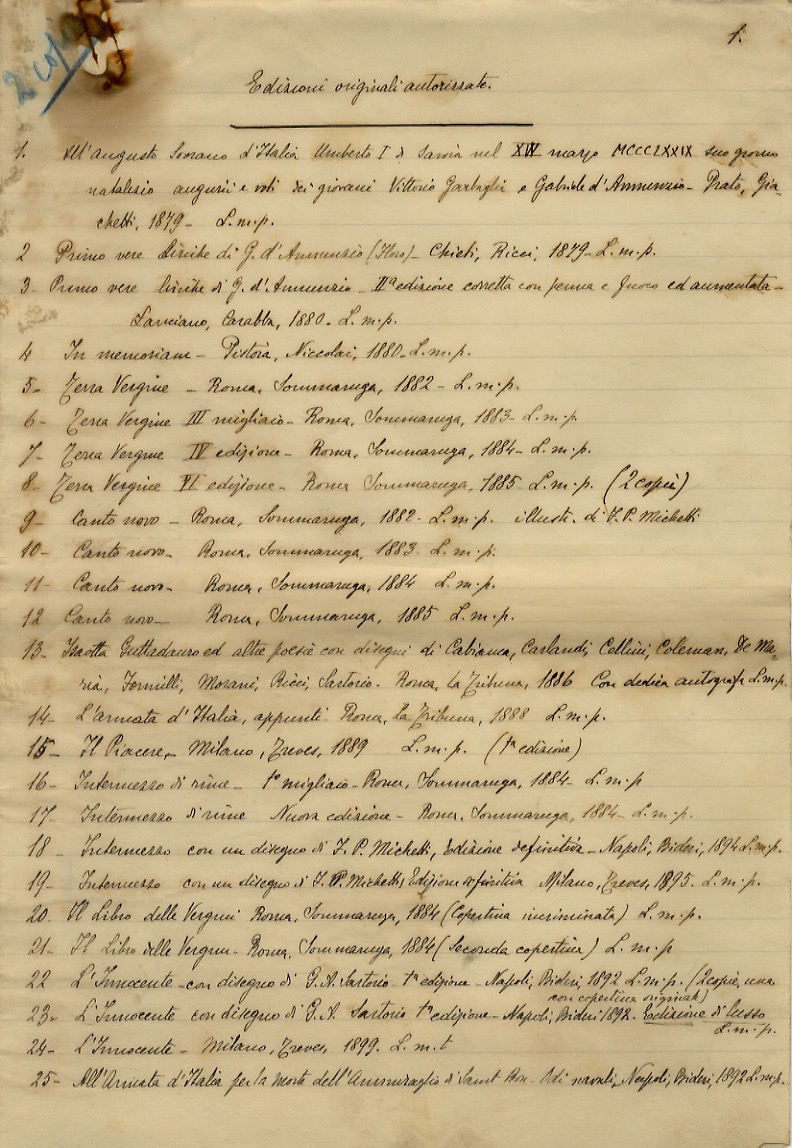 2 copie
1.
Edizioni originali autorizzate.
1. All'augusto Sovrano d'Italia Umberto I di Savoia nel XIV marzo MCCCLXXIX suo giorno
natalizio augurii e voti dei giovani Vittorio Garbaglia e Gabriele d'Annunzio - Prato, Gia-
chetti, 1879 - L.m.p.
2 Primo vere liriche di G. d'Annunzio (Floro) - Chieti, Ricci, 1879 - L.m.p.
3 - Primo vere liriche di G. d'Annunzio - IIª edizione corretta con penna e fuoco ed aumentata -
Lanciano, Carabba, 1880 - L.m.p.
4 In memoriam - Pistoia, Niccolai, 1880 - L.m.p.
5 - Terra Vergine - Roma, Sommaruga, 1882 - L.m.p.
6 - Terra Vergine III migliaio - Roma, Sommaruga, 1883 - L.m.p.
7 - Terra Vergine IV edizione - Roma, Sommaruga, 1884 - L.m.p.
8 - Terra Vergine VI edizione - Roma Sommaruga, 1885 L.m.p. (2 copie)
9 - Canto novo - Roma, Sommaruga, 1882 - L.m.p. illustr. di F. P. Michetti
10 - Canto novo - Roma, Sommaruga, 1883. L.m.p.
11 - Canto novo - Roma, Sommaruga, 1884 L.m.p.
12 Canto novo - Roma, Sommaruga, 1885 L.m.p.
13 - Isaotta Guttadauro ed altre poesie con disegni di Cabianca, Carlandi, Cellini, Coleman, De Ma-
ria, Formilli, Morani, Ricci, Sartorio - Roma, La Tribuna, 1886 Con dedica autografa L.m.p.
14 - L'armata d'Italia, appunti - Roma, La Tribuna, 1888 L.m.p.
15 - Il Piacere, - Milano, Treves, 1889 L.m.p. (1ª edizione)
16 - Intermezzo di rime - 1º migliaio - Roma, Sommaruga, 1884 - L.m.p
17. Intermezzo di rime Nuova edizione - Roma, Sommaruga, 1884 - L.m.p.
18 - Intermezzo con un disegno di F. P. Michetti, Edizione definitiva - Napoli, Bideri, 1894 L.m.p.
19 - Intermezzo con un disegno di F. P. Michetti, Edizione definitiva Milano, Treves, 1895. L.m.p.
20. Il Libro delle Vergini Roma, Sommaruga, 1884 (Copertina incriminata) L.m.p.
21 - Il Libro delle Vergini - Roma, Sommaruga, 1884 (Seconda copertina) L.m.p
22 L'Innocente - con disegno di G. A. Sartorio - 1ª edizione - Napoli, Bideri, 1892 L.m.p. (2 copie, una
con copertina originale)
23 - L'Innocente con disegno di G. A. Sartorio 1ª edizione - Napoli, Bideri 1892. Edizione di lusso
L.m.p.
24 - L'Innocente - Milano, Treves, 1899. L.m.t
25 - All'Armata d'Italia per la morte dell'Ammiraglio di Saint Bon - Odi navali, Napoli, Bideri, 1892 L.m.p.